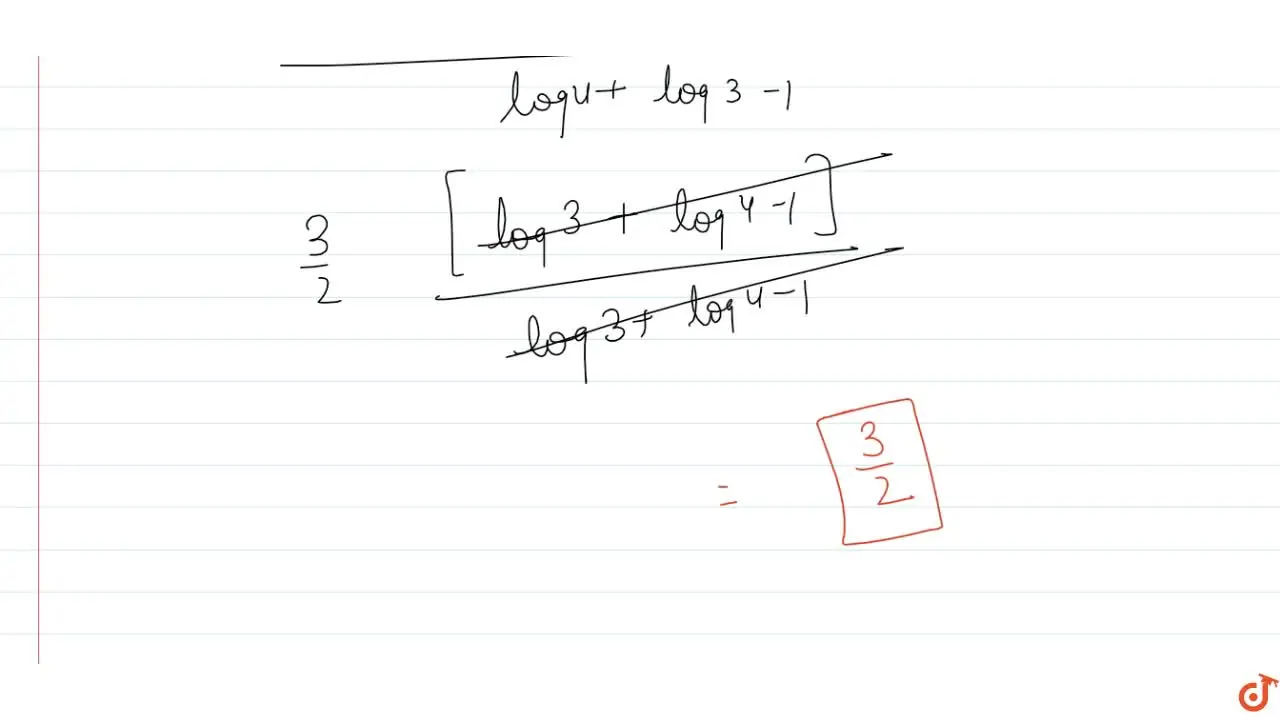 log 4 + log 3 - 1
3/2 [log 3 + log 4 - 1]
log 3 + log 4 - 1
= 3/2